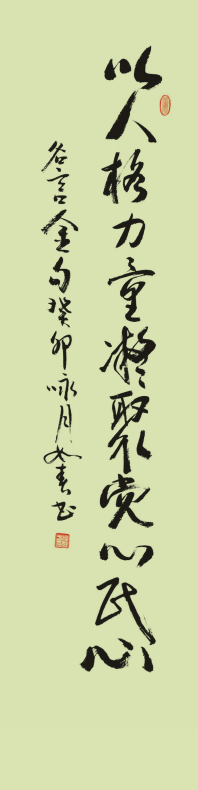 以人格力量凝聚党心民心
谷言金句癸卯咏月如春书